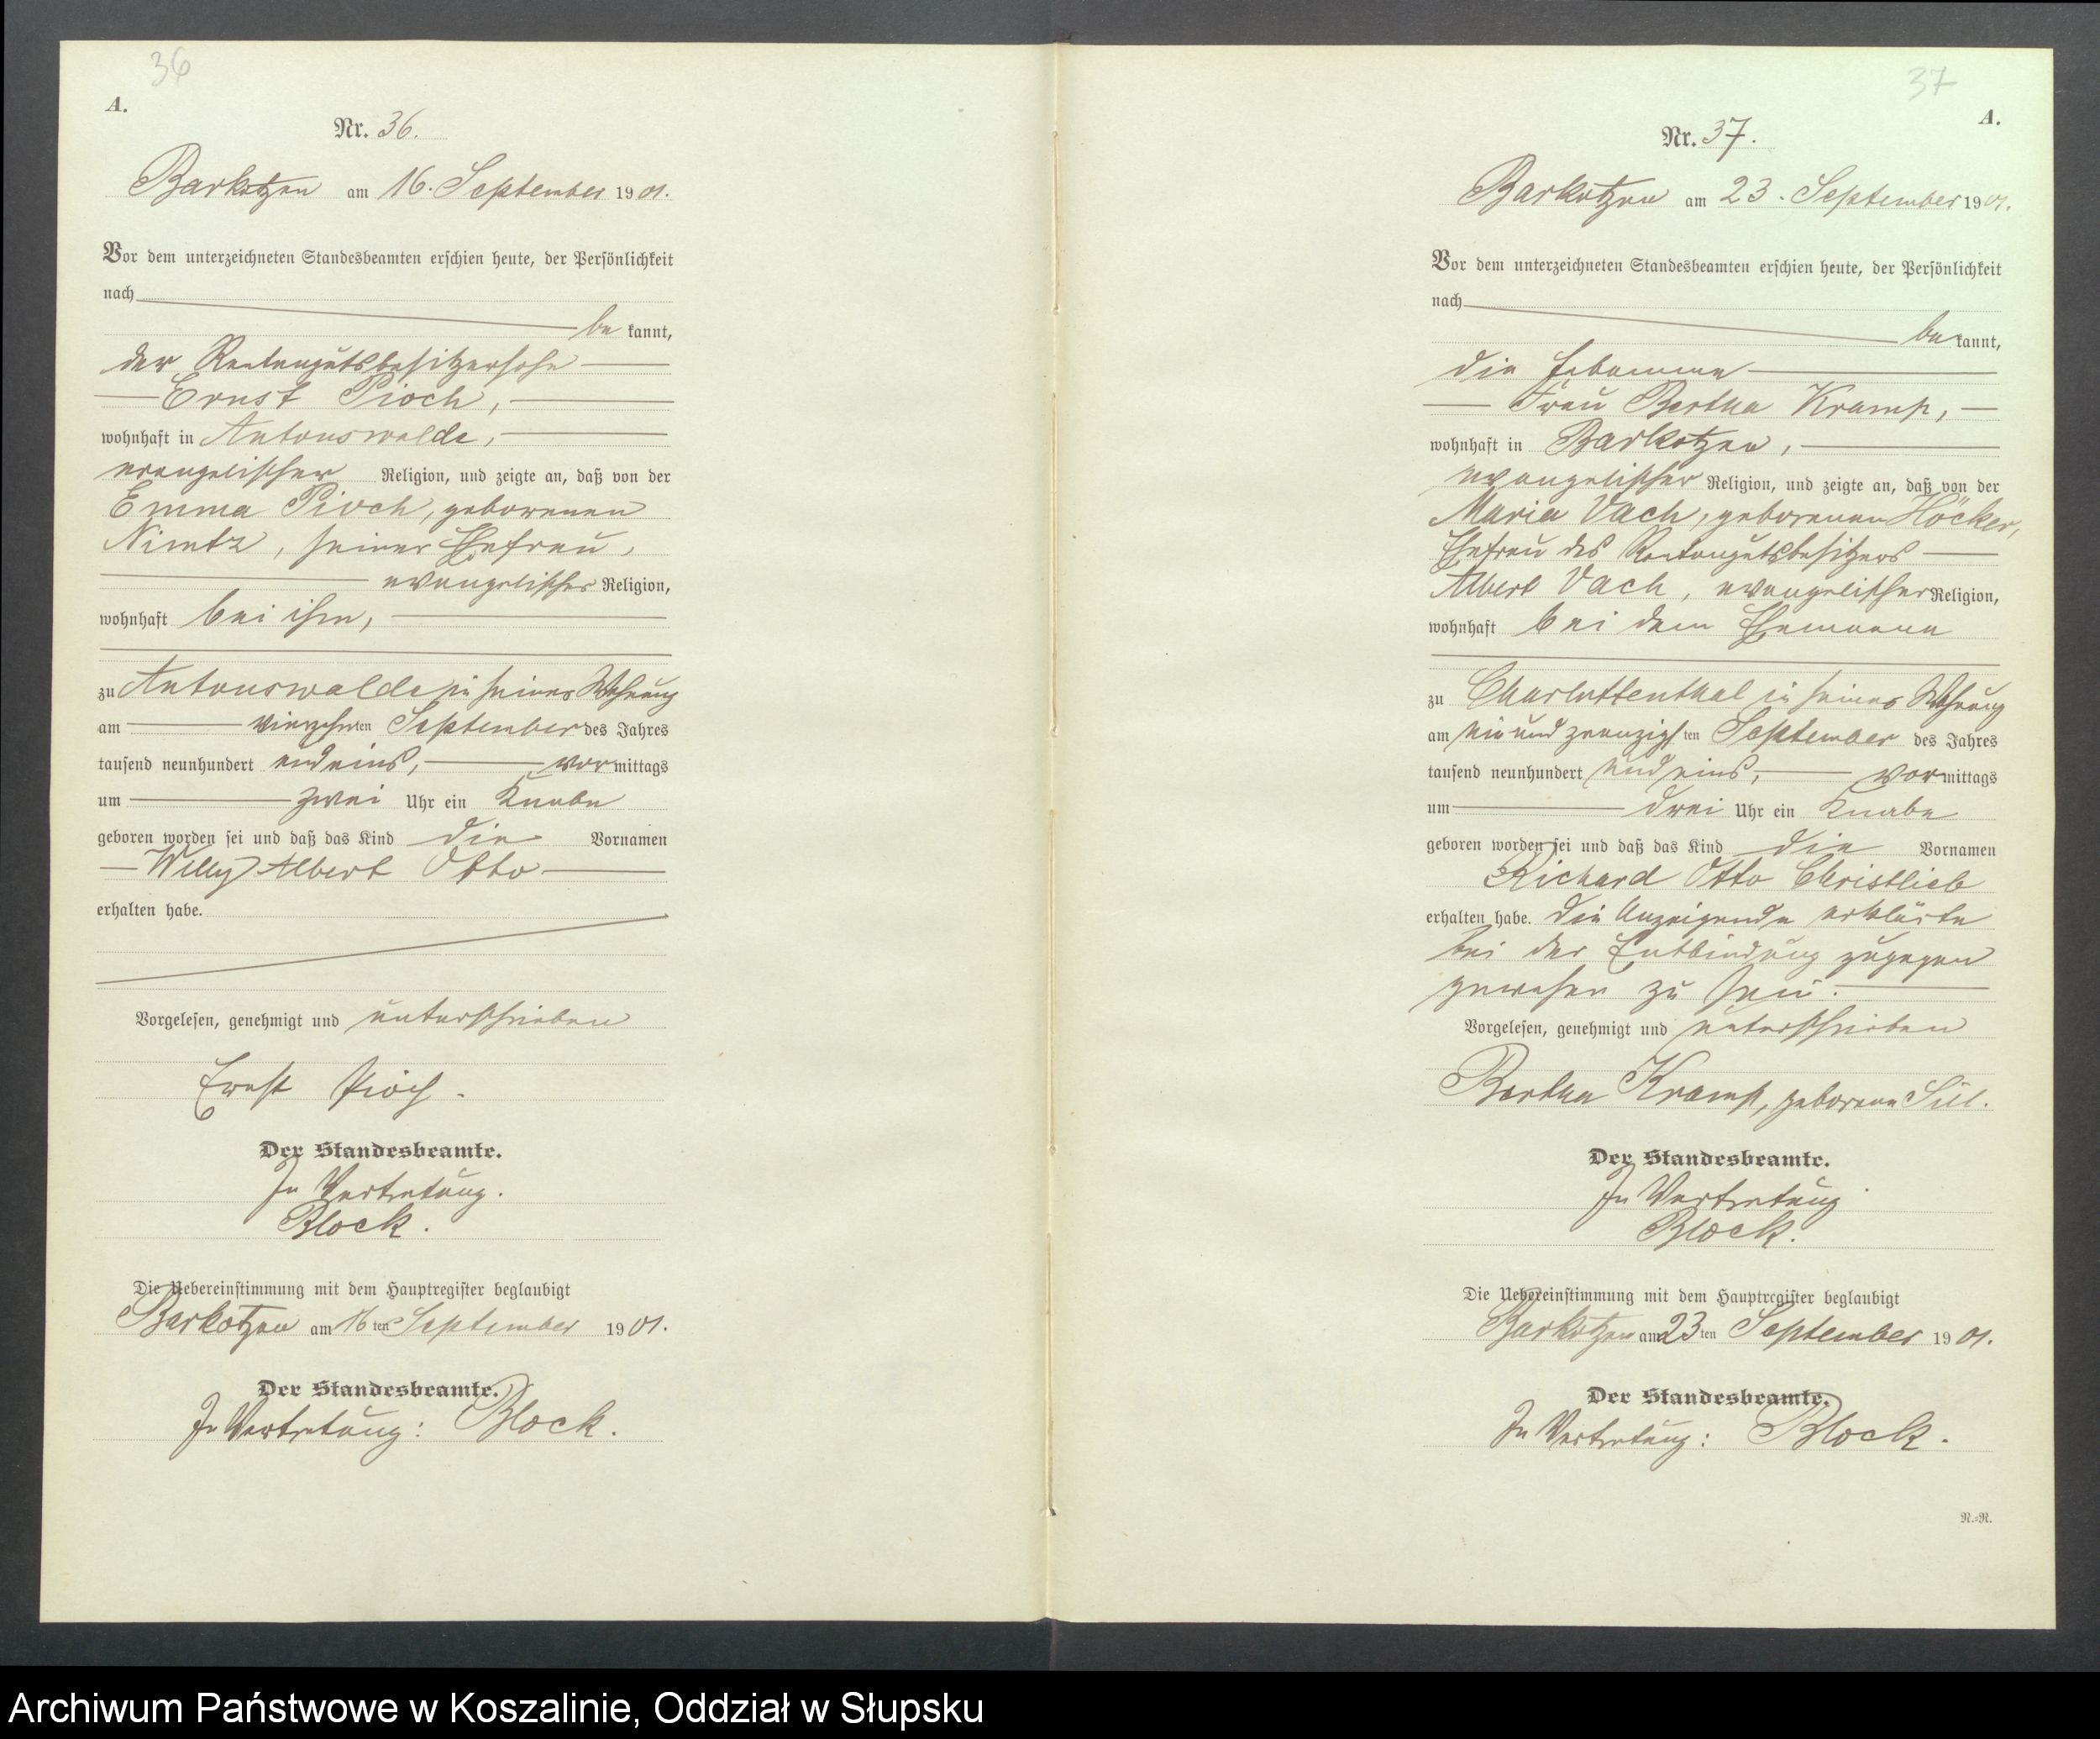 36
A.
Nr. 36.
Barkotzen am 16. September 1901.
Vor dem unterzeichneten Standesbeamten erschien heute, der Persönlichkeit
nach
be kannt,
der Rentengutsbesitzersohn
Ernst Pioch,
wohnhaft in Antonswalde,
evangelischer Religion, und zeigte an, daß von der
Emma Pioch, geborenen
Nimtz, seiner Ehefrau,
evangelischer Religion,
wohnhaft bei ihm,
zu Antonswalde in seiner Wohnung
am vierzehnten September des Jahres
tausend neunhundert und eins, vormittags
um zwei Uhr ein Knabe
geboren worden sei und daß das Kind die Vornamen
Willy Albert Otto
erhalten habe.
Vorgelesen, genehmigt und unterschrieben
Ernst Pioch.
Der Standesbeamte.
In Vertretung.
Block.
Die Uebereinstimmung mit dem Hauptregister beglaubigt
Barkotzen am 16ten September 1901.
Der Standesbeamte.
In Vertretung: Block.
37
A.
Nr. 37.
Barkotzen am 23. September 1901.
Vor dem unterzeichneten Standesbeamten erschien heute, der Persönlichkeit
nach
be kannt,
die Hebamme
Frau Bertha Kramp,
wohnhaft in Barkotzen,
evangelischer Religion, und zeigte an, daß von der
Maria Vach, geborenen Höcker,
Ehefrau des Rentengutsbesitzers
Albert Vach, evangelischer Religion,
wohnhaft bei dem Ehemanne
zu Charlottenthal in seiner Wohnung
am ein und zwanzigsten September des Jahres
tausend neunhundert und eins, vormittags
um drei Uhr ein Knabe
geboren worden sei und daß das Kind die Vornamen
Richard Otto Christlieb
erhalten habe. Die Anzeigende erklärte
bei der Entbindung zugegen
gewesen zu sein.
Vorgelesen, genehmigt und unterschrieben
Bertha Kramp, geborene
Der Standesbeamte.
In Vertretung
Block.
Die Uebereinstimmung mit dem Hauptregister beglaubigt
Barkotzen am 23ten September 1901.
Der Standesbeamte.
In Vertretung: Block.
N.=N.
Archiwum Państwowe w Koszalinie, Oddział w Słupsku